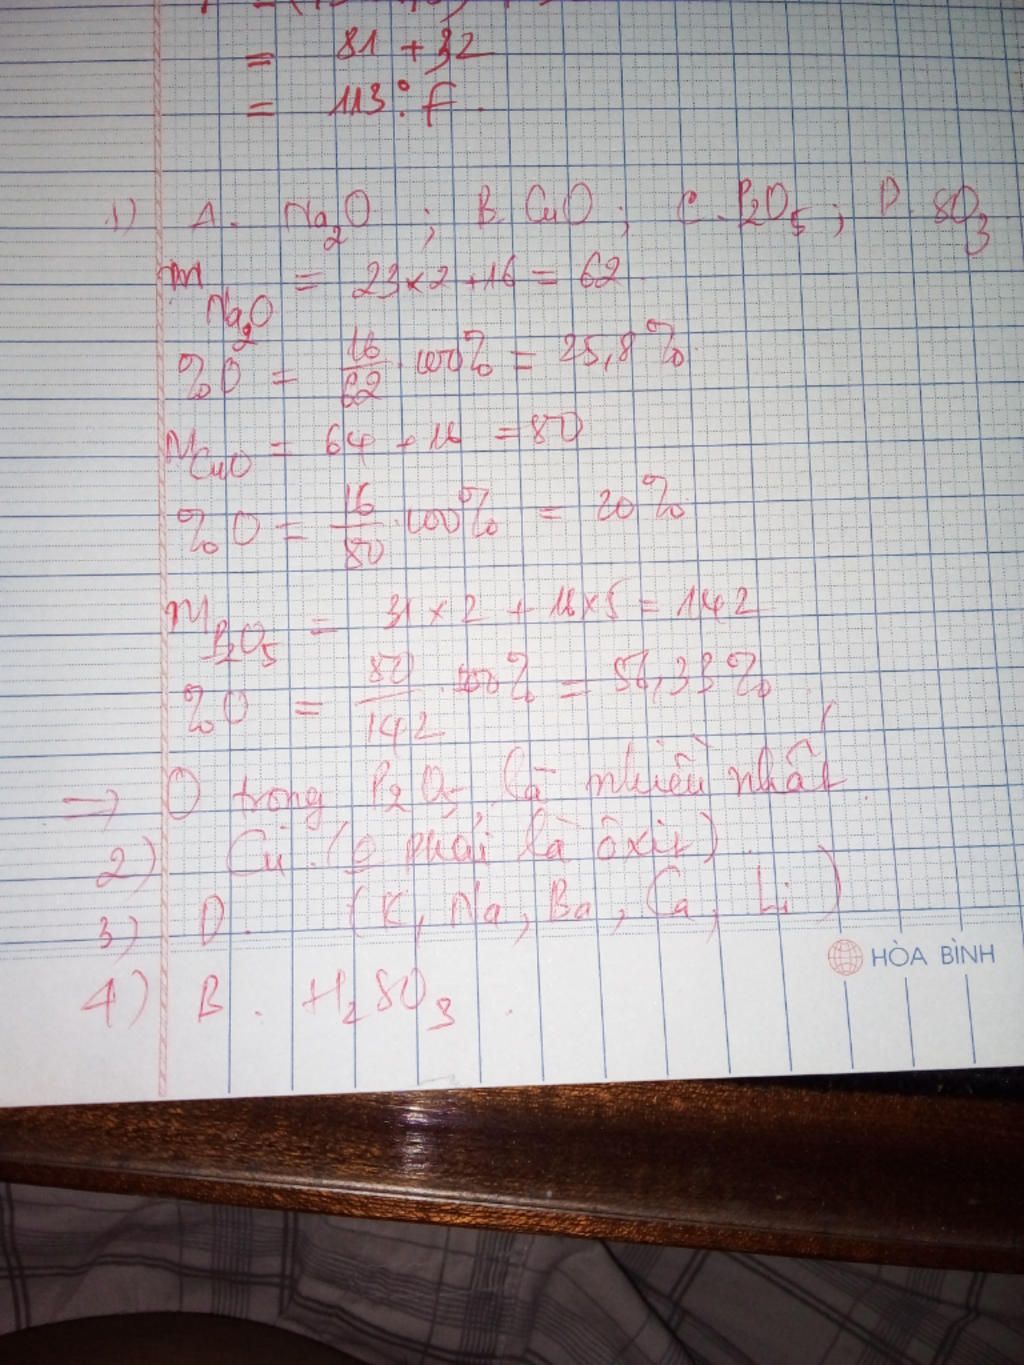 = 81 + 32
= 113°F.
1) A. Na2O ; B. CuO ; C. P2O5 ; D. SO3
M Na2O = 23 x 2 + 16 = 62
%O = 16/62 . 100% = 25,8%.
M CuO = 64 + 16 = 80
%O = 16/80 . 100% = 20%
M P2O5 = 31 x 2 + 16 x 5 = 142
%O = 80/142 . 100% = 56,33%
=> O trong P2O5 là nhiều nhất.
2) Cu. ( phải là ôxit)
3) D. (K, Na, Ba, Ca, Li)
HÒA BÌNH
4) B. H2SO3.